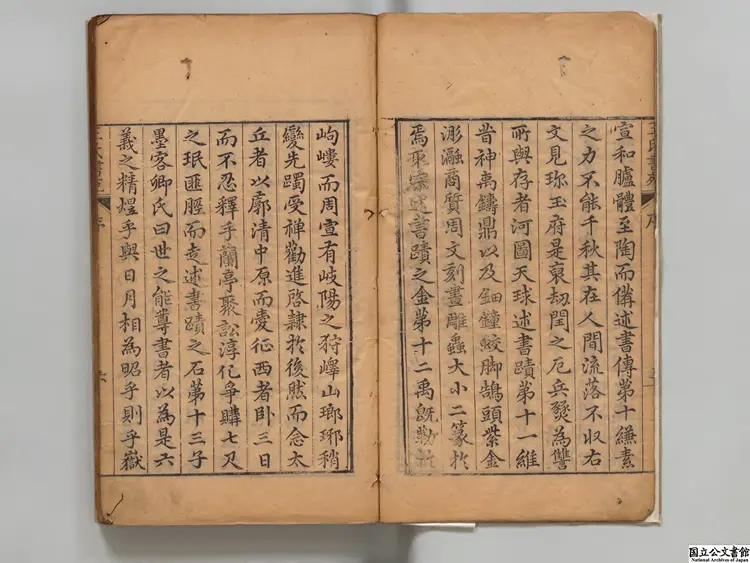 宣和臚體至陶而儁述書傳第十縑素
之力不能千秋其在人間流落不収右
文見珎玉府是裒劫閏之厄兵燹為讐
所與存者河圖天球述書蹟第十一維
昔神禹鑄鼎以及鈿鐘蛟脚鵠頭紫金
澎瀜商質周文刻畫雕蟲大小二篆於
焉取宗述書蹟之金第十二禹既勒於
岣嶁而周宣有岐陽之狩嶧山瑯琊稍
變先躅受禅勸進啓隷於後然而念太
丘者以廓清中原而愛征西者卧三日
而不忍釋乎蘭亭聚訟淳化爭購七尺
之珉匪脛而走述書蹟之石第十三子
墨客卿氏曰世之能尊書者以為是六
義之精煜乎與日月相為昭乎則乎嶽
王氏書苑
序
六
国立公文書館
National Archives of Japan